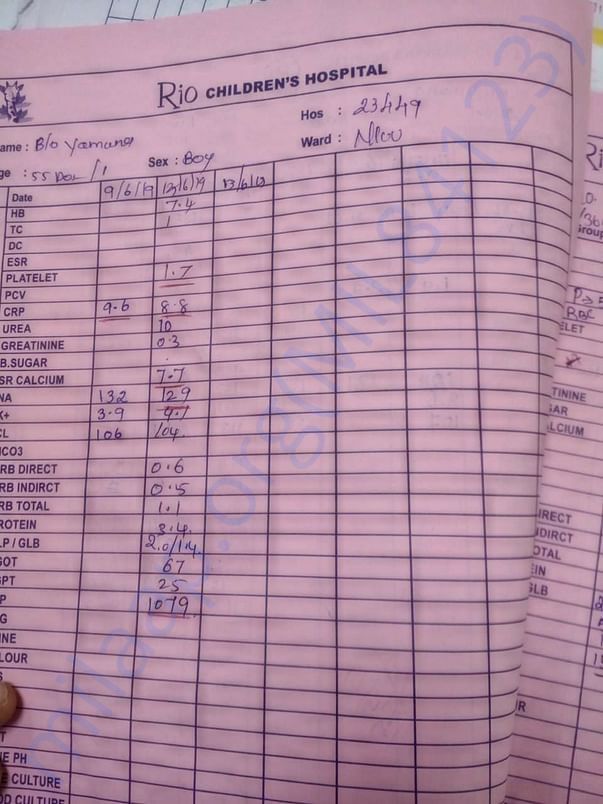 Rio CHILDREN'S HOSPITAL
Hos : 23449
ame : B/o Yamuna
Ward :
ge : 55 Sex : Boy
Date 9/6/19 12/6/19 13/6/19
HB 7.4
TC
DC
ESR
PLATELET 1.7
PCV
CRP 9.6 8.8
UREA 10
GREATININE 0.3
B.SUGAR
SR CALCIUM 7.7
NA 132 129
K+ 3.9 4.1
CL 106 104
HCO3
RB DIRECT 0.6
RB INDIRCT 0.5
RB TOTAL 1.1
ROTEIN 3.4
LP / GLB 2.0/1.4
GOT 67
GPT 25
P 1079
G
INE
LOUR
S
T
E PH
E CULTURE
OD CULTURE
Ri
Group
RBC
ELET
TININE
GAR
LCIUM
IRECT
NDIRCT
OTAL
EIN
GLB
R
milaap.org(MIL841123)